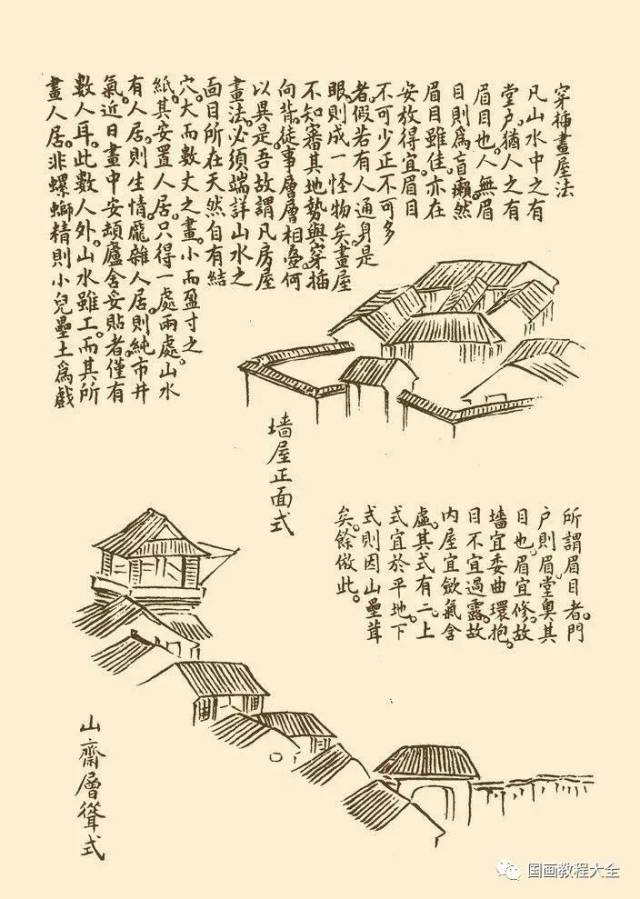 穿插畫屋法
凡山水中之有
堂户。猶人之有
眉目也。人無眉
目則為盲癩。然
眉目雖佳。亦在
安放得宜。眉目
不可少。正不可多
者。假若有人通身是
眼。則成一怪物矣。畫屋
不知審其地勢。與穿插
向背。徒事層層相疊。何
以異是。吾故謂凡房屋
畫法。必須端詳山水之
面目所在。天然自有結
穴。大而數丈之畫。小而盈寸之
紙。其安置人居。只得一處兩處。山水
有人居。則生情。龐雜人居。則純市井
氣。近日畫中安頓廬舍妥貼者。僅有
數人耳。此數人外。山水雖工。而其所
畫人居。非螺螄精則小兒壘土為戲
墙屋正面式
所謂眉目者。門
户則眉。堂奥其
目也。眉宜修。故
墻宜委曲環抱。
目不宜過露。故
内屋宜歛氣含
虛。其式有二。上
式宜於平地。下
式則因山壘茸
矣。餘倣此。
山齋層聳式
国画教程大全